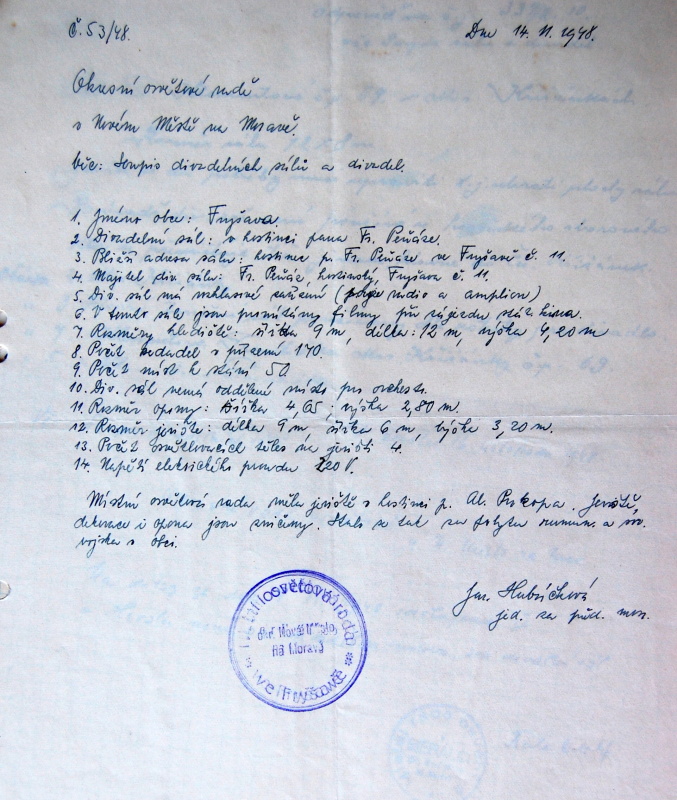 Č. 53/48. Dne 14. II. 1948.
Okresní osvětové radě
v Novém Městě na Moravě.
Věc: Soupis divadelních sálů a divadel.
1. Jméno obce: Fryšava.
2. Divadelní sál: v hostinci pana Fr. Peňáze.
3. Bližší adresa sálu: hostinec p. Fr. Peňáze ve Fryšavě č. 11.
4. Majitel div. sálu: Fr. Peňáz, hostinský, Fryšava č. 11.
5. Div. sál má rozhlasové zařízení (radio a amplion)
6. V tomto sále jsou promítány filmy při zájezdu stát. kina.
7. Rozměry hlediště: šířka 9 m, délka: 12 m, výška 4,20 m
8. Počet sedadel v přízemí 170.
9. Počet míst k stání 50.
10. Div. sál nemá oddělené místo pro orchestr.
11. Rozměr opony: šířka 4,65, výška 2,80 m.
12. Rozměr jeviště: délka 9 m, šířka 6 m, výška 3,20 m.
13. Počet osvětlovacích těles na jevišti 4.
14. Napětí elektrického proudu 220 V.
Místní osvětová rada měla jeviště v hostinci p. Al. Prokopa. Jeviště,
dekorace i opona jsou zničeny. Stalo se tak za pobytu rumun. a sov.
vojska v obci.
Jar. Hubáčková
jed. za před. mor.
Místní osvětová rada
okr. Nové Město
na Moravě
ve Fryšavě